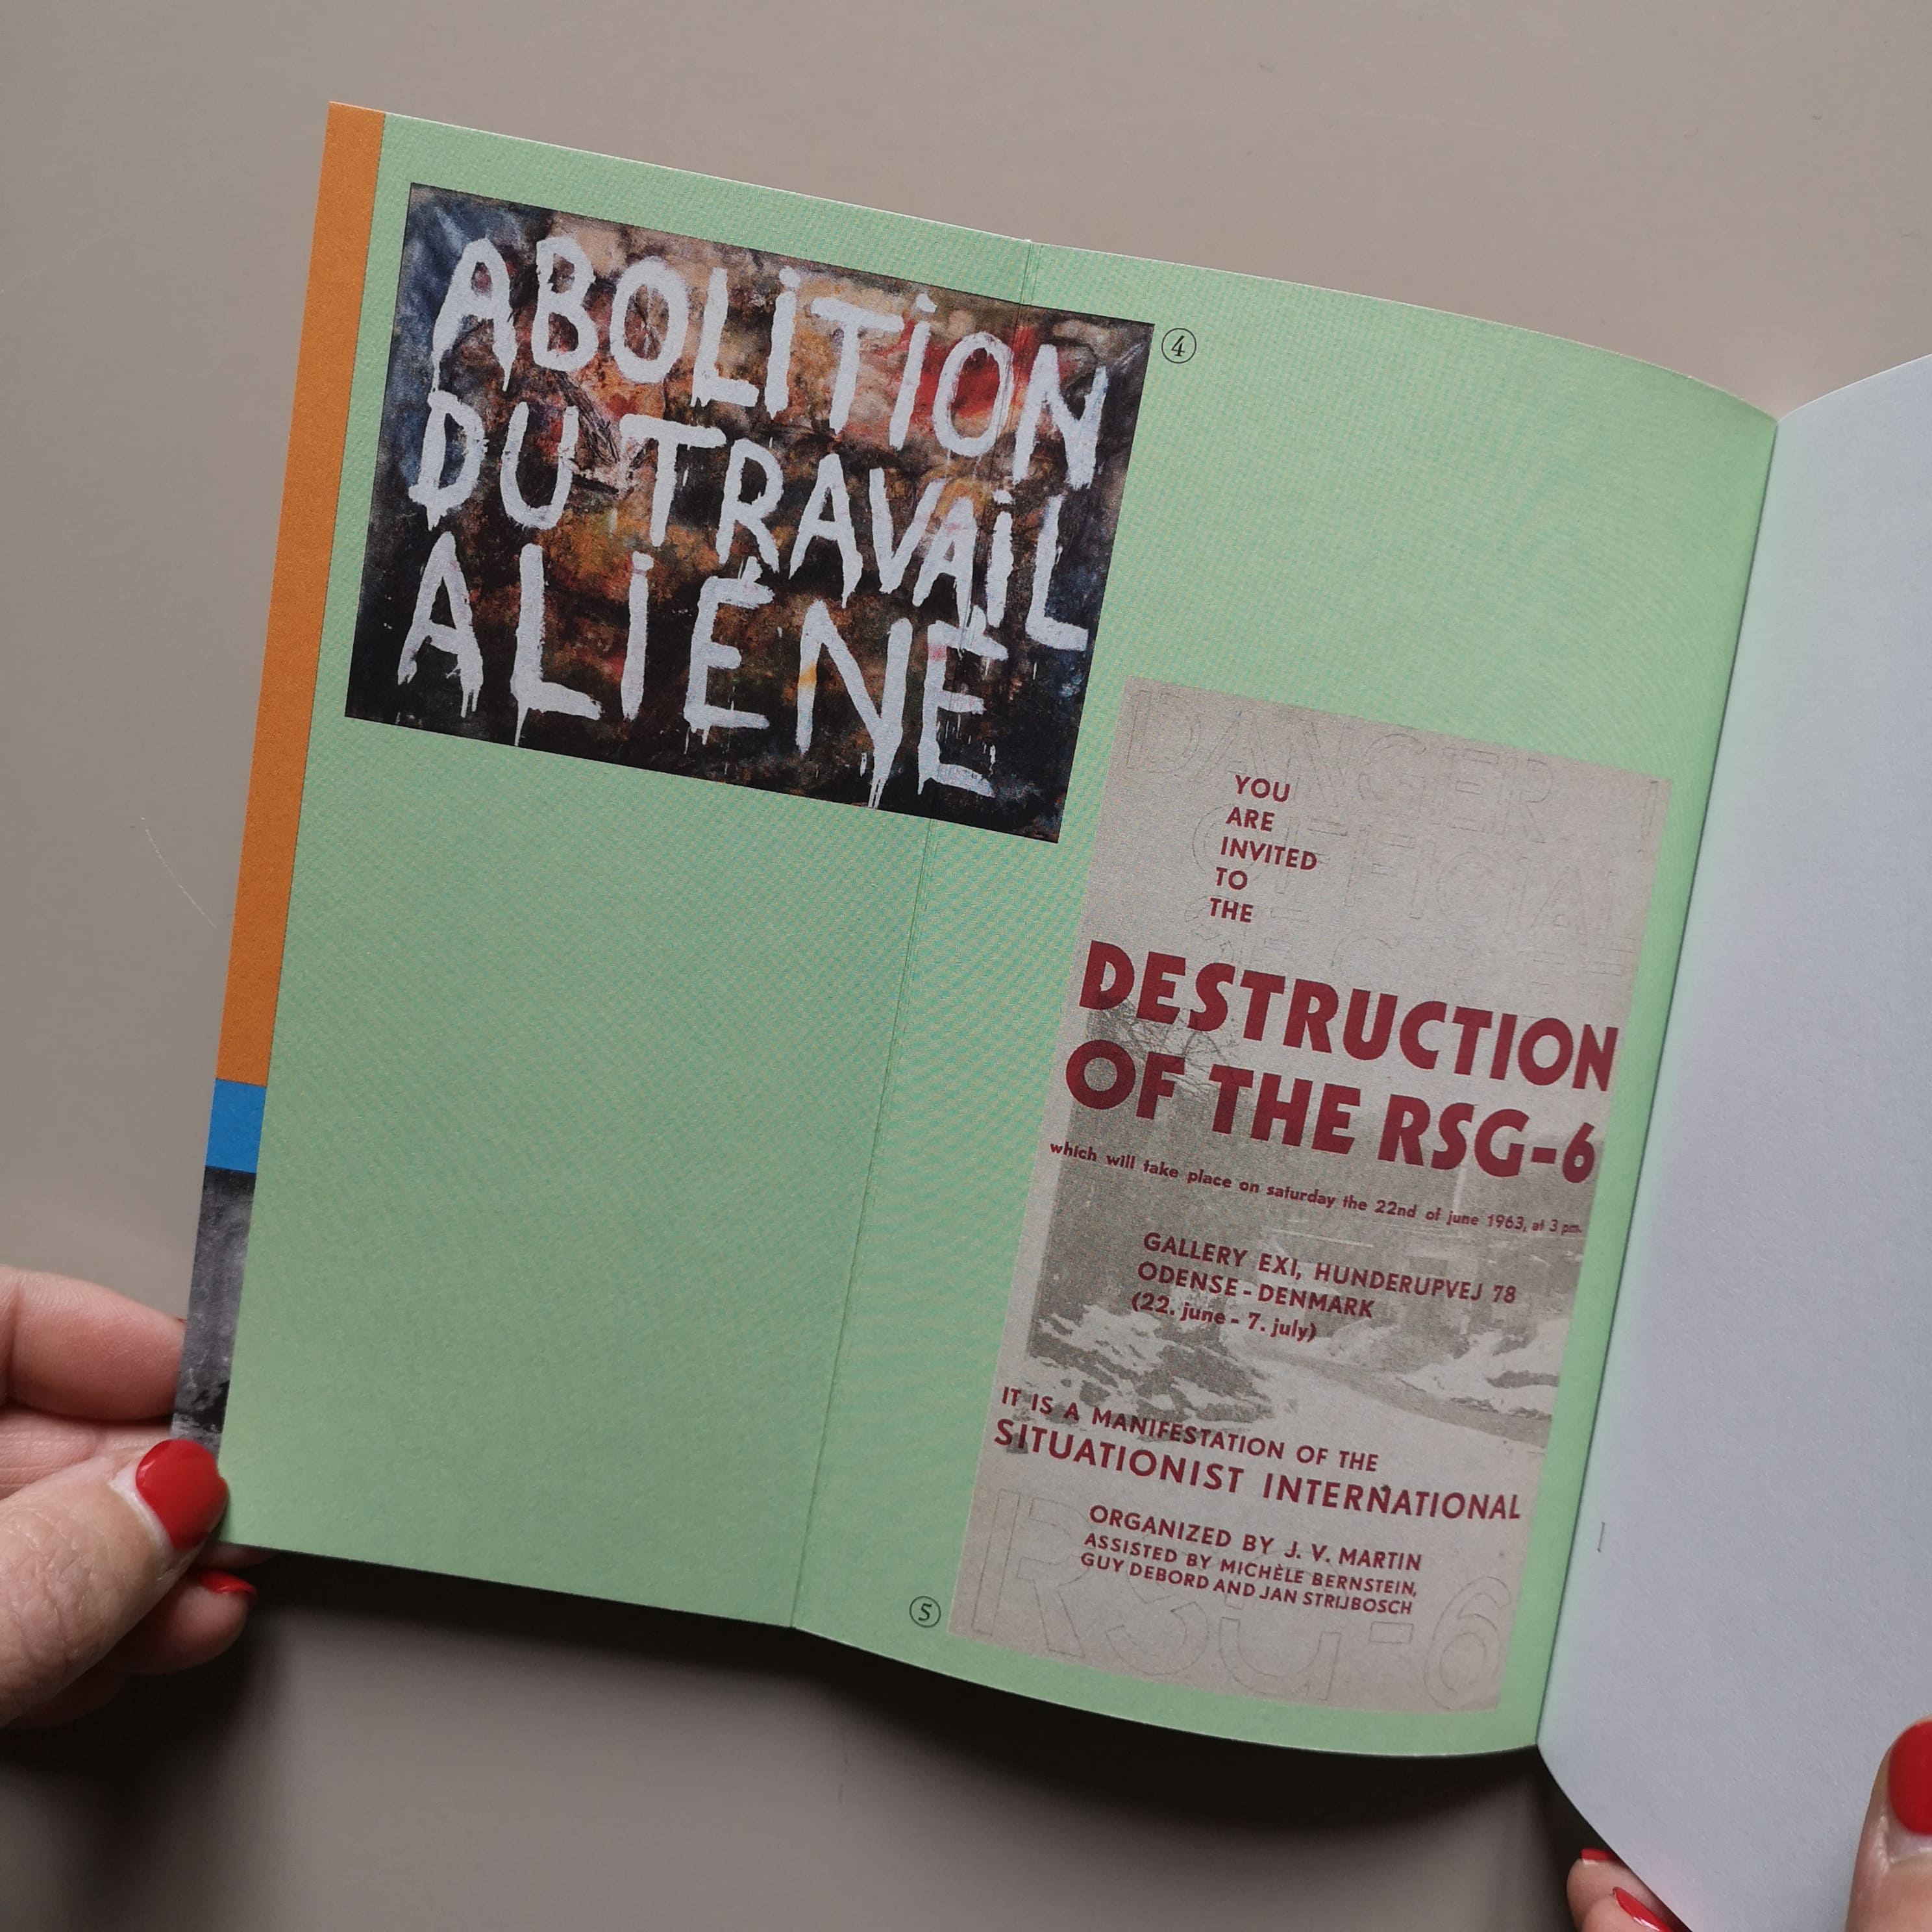 ABOLiTiON
DU TRAVAiL
ALiÉNÉ
4
DANGER !
OFFICIAL
YOU
ARE
INVITED
TO
THE
DESTRUCTION
OF THE RSG-6
which will take place on saturday the 22nd of june 1963, at 3 pm.
GALLERY EXI, HUNDERUPVEJ 78
ODENSE - DENMARK
(22. june - 7. july)
IT IS A MANIFESTATION OF THE
SITUATIONIST INTERNATIONAL
ORGANIZED BY J. V. MARTIN
ASSISTED BY MICHÈLE BERNSTEIN,
GUY DEBORD AND JAN STRIJBOSCH
RSG-6
5